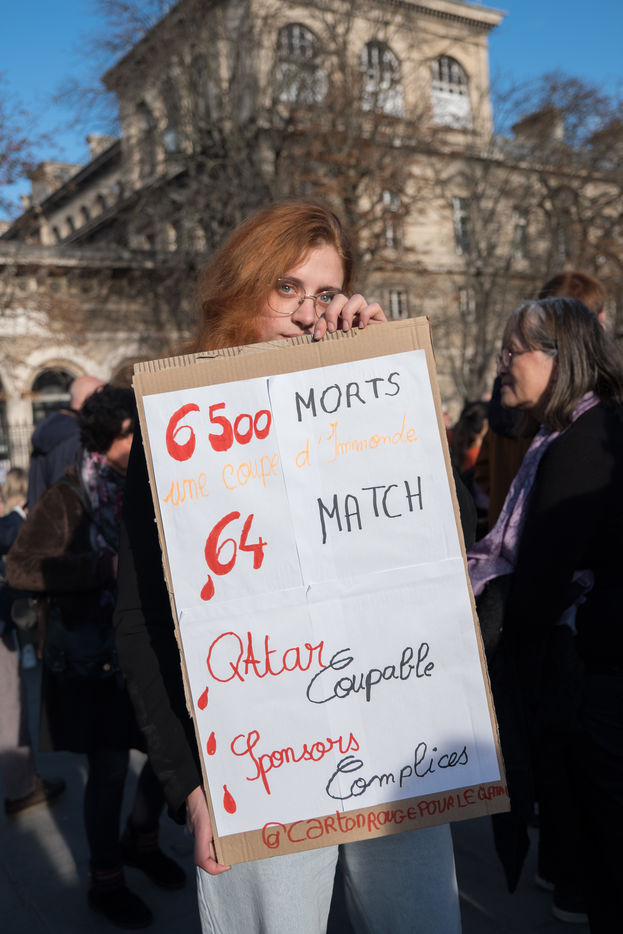 6500 MORTS
une coupe d'Immonde
64 MATCH
QAtar Coupable
Sponsors Complices
@CARTONROUGEPOURLEQATAR